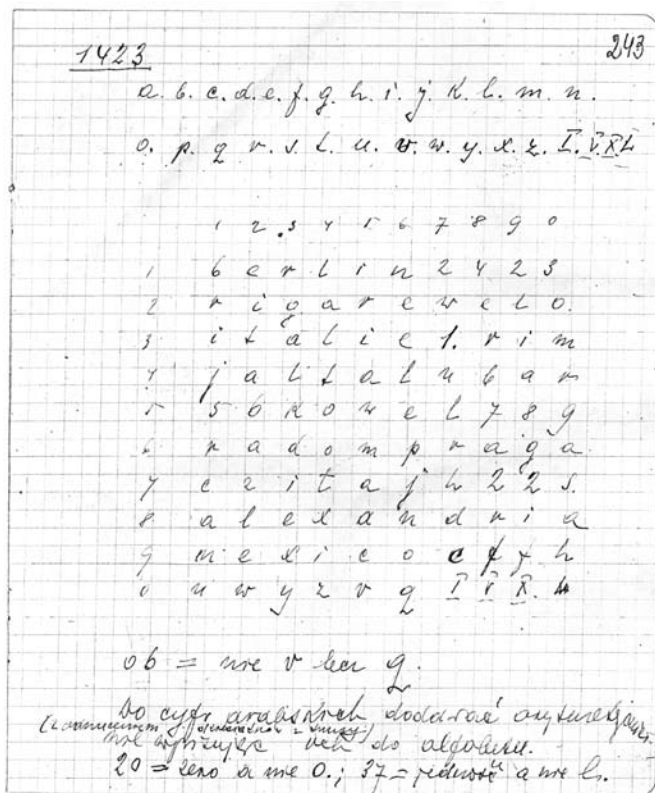 1423
243
a. b. c. d. e. f. g. h. i. j. k. l. m. n.
o. p. q r. s. t. u. v. w. y. x. z. I. V. X. L
1 2 3 4 5 6 7 8 9 0
1 b e r l i n 2 4 2 3
2 r i g a r e w e l o.
3 i t a l i e 1. r i m
4 j a l t a l u b a r
5 5 6 k o w e l 7 8 9
6 r a d o m p r a g a
7 c z i t a j h 2 2 s.
8 a l e x a n d r i a
9 m e x i c o c f f h
0 u w y z v q I V X.
06 = nie v lecz q.
Do cyfr arabskich dodawać
nie wpisując ich do alfabetu.
20 = zero a nie 0.; 37 = jedność a nie l.